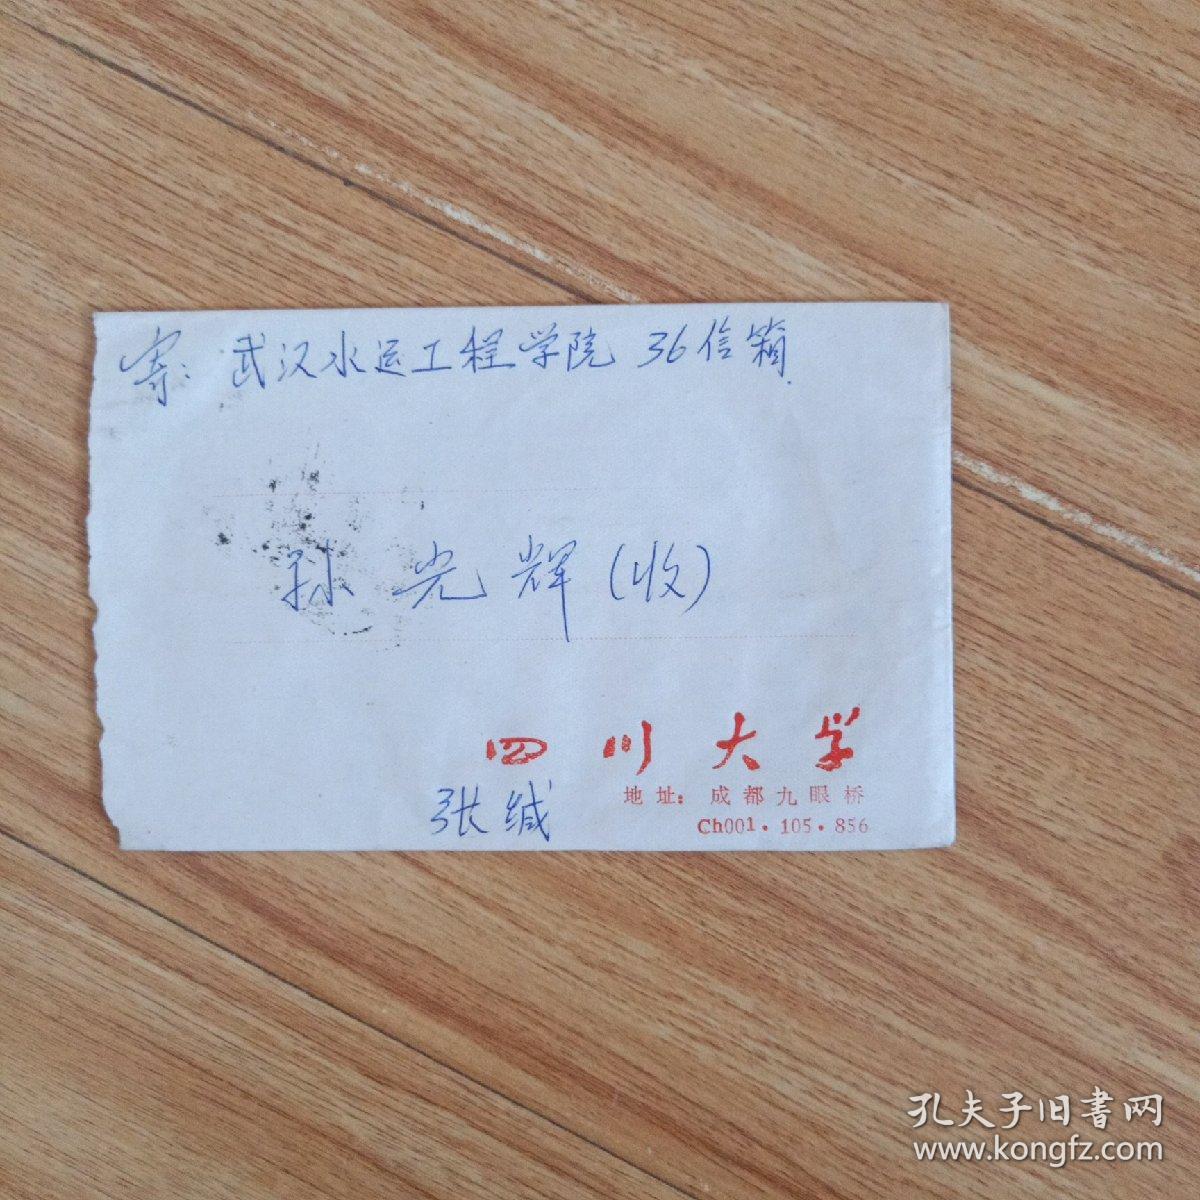 寄: 武汉水运工程学院 36信箱
孙光辉(收)
四川大学
张缄
地址: 成都九眼桥
Ch001·105·856
孔夫子旧书网
www.kongfz.com